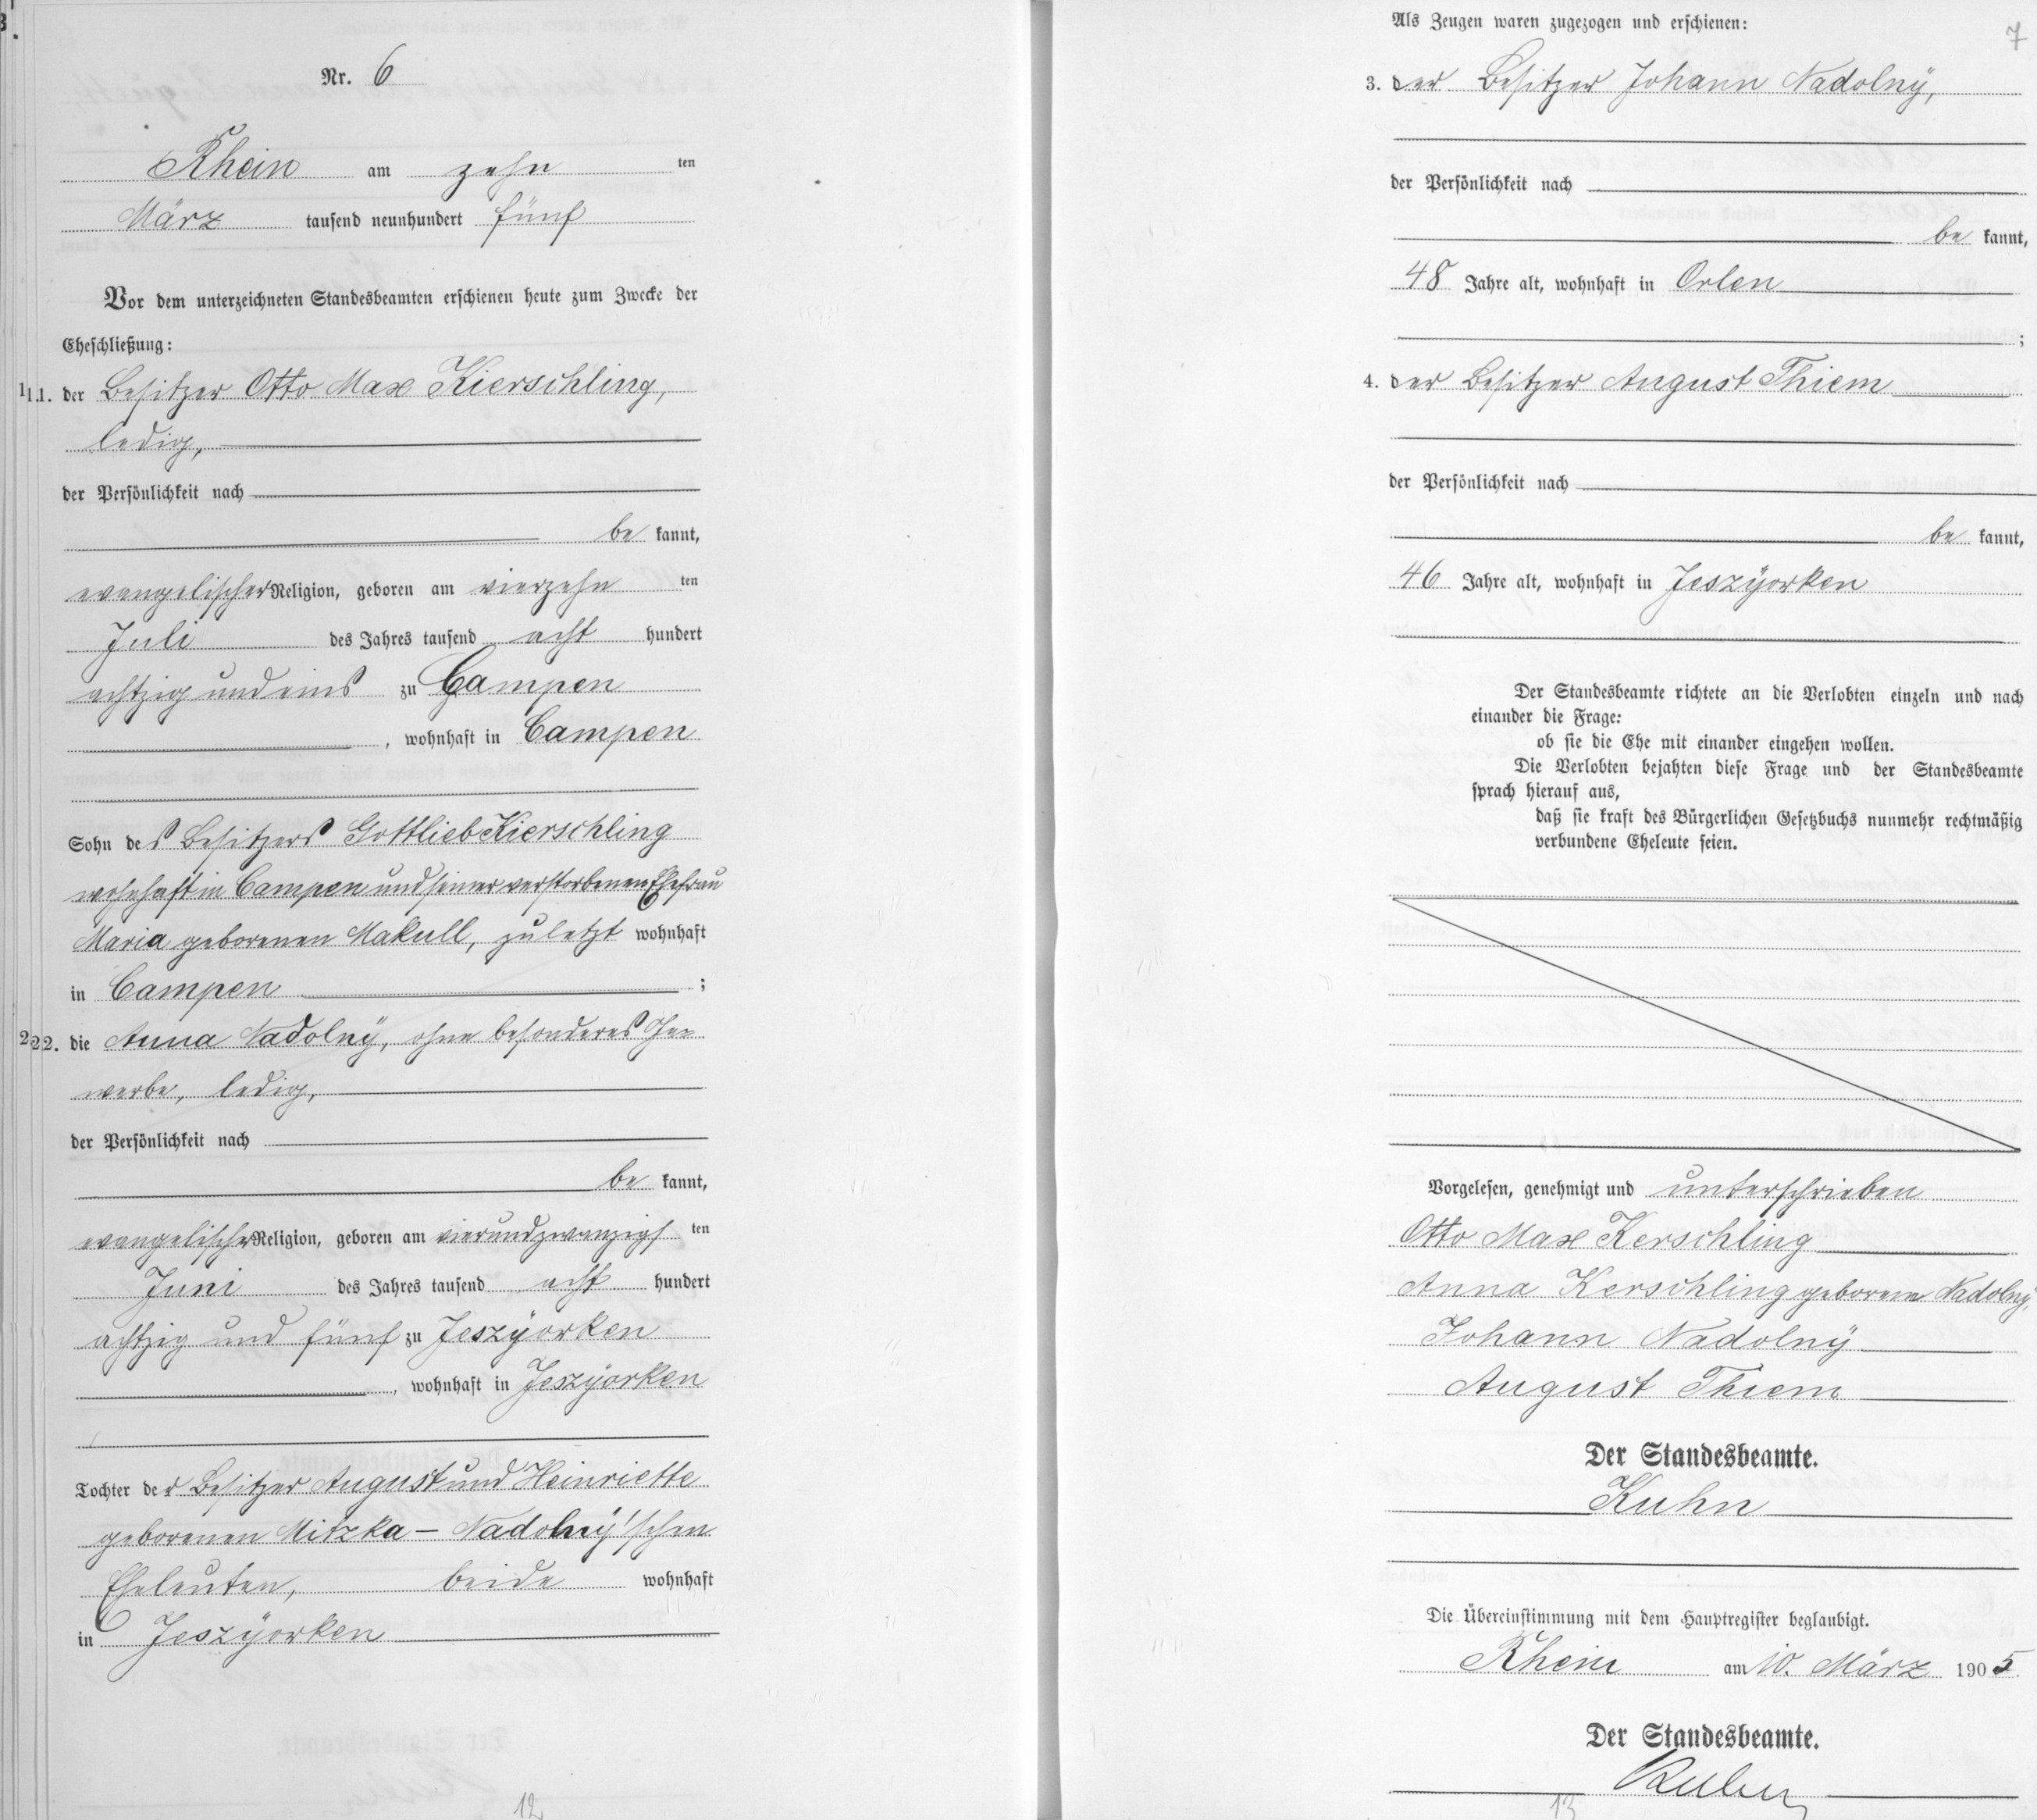 Nr. 6
Rhein am zehn ten
März tausend neunhundert fünf
Vor dem unterzeichneten Standesbeamten erschienen heute zum Zwecke der
Eheschließung:
1. der Besitzer Otto Max Kierschling,
ledig,
der Persönlichkeit nach
be kannt,
evangelischer Religion, geboren am vierzehn ten
Juli des Jahres tausend acht hundert
achtzig und eins zu Campen
, wohnhaft in Campen
Sohn des Besitzers Gottlieb Kierschling
wohnhaft in Campen und seiner verstorbenen Ehefrau
Maria geborenen Makull, zuletzt wohnhaft
in Campen ;
2. die Anna Nadolnÿ, ohne besonderes Ge=
werbe, ledig,
der Persönlichkeit nach
be kannt,
evangelischer Religion, geboren am vierundzwanzigs ten
Juni des Jahres tausend acht hundert
achtzig und fünf zu Jeszÿorken
, wohnhaft in Jeszÿorken
Tochter der Besitzer August und Heinriette
geborenen Mitzka – Nadolnÿ'schen
Eheleuten, beide wohnhaft
in Jeszÿorken
12
7
Als Zeugen waren zugezogen und erschienen:
3. der Besitzer Johann Nadolnÿ,
der Persönlichkeit nach
be kannt,
48 Jahre alt, wohnhaft in Orlen
;
4. der Besitzer August Thiem
der Persönlichkeit nach
be kannt,
46 Jahre alt, wohnhaft in Jeszÿorken
Der Standesbeamte richtete an die Verlobten einzeln und nach
einander die Frage:
ob sie die Ehe mit einander eingehen wollen.
Die Verlobten bejahten diese Frage und der Standesbeamte
sprach hierauf aus,
daß sie kraft des Bürgerlichen Gesetzbuchs nunmehr rechtmäßig
verbundene Eheleute seien.
Vorgelesen, genehmigt und unterschrieben
Otto Max Kerschling
Anna Kerschling geborene Nadolnÿ,
Johann Nadolnÿ
August Thiem
Der Standesbeamte.
Kuhn
Die Übereinstimmung mit dem Hauptregister beglaubigt.
Rhein am 10. März 1905.
Der Standesbeamte.
Kuhn
13